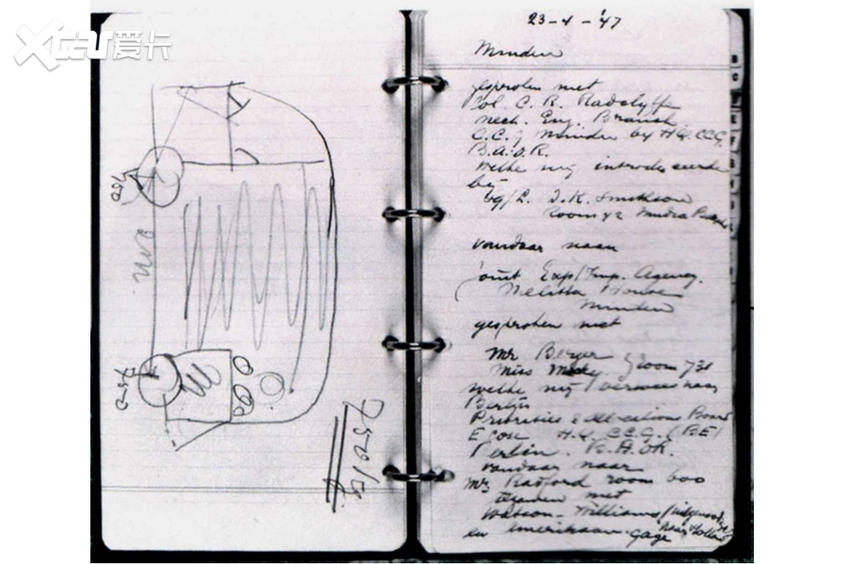 爱卡
750
750
2 m.
750 kg
23-4-'47
Minden
gesproken met
Col. C. R. Radclyffe
Mech. Eng. Branch
C.C.G Minden by H.Q. CCG
B.A.O.R.
welke mij introduceerde
bij
Room 42
vandaar naar
Joint Exp/Imp. Agency.
Melitta House
Minden
gesproken met
Mr Berger
Miss room 731
welke mij verwees naar
Berlijn
Priorities & Allocations Board
Econ H.Q. C.C.G. (BE)
Berlin. B.A.O.R.
vandaar naar
Mr Radford room 600
tezamen met
Watson - Williams
en Amerikaan. Gage